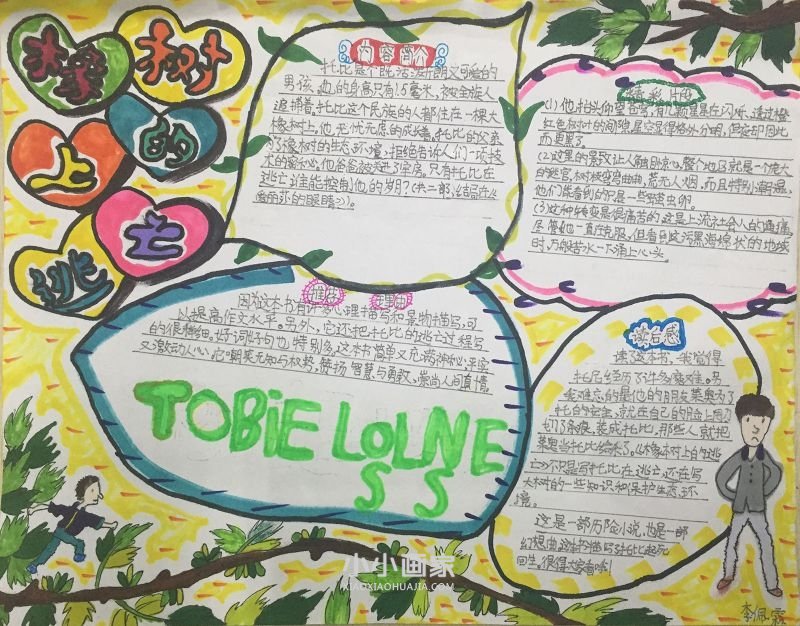 橡树
上的
逃亡
内容简介
托比是个既活泼开朗又可爱的
男孩,他的身高只有1.5毫米,被全族人
追捕着。托比这个民族的人都住在一棵大
橡树上,他无忧无愿的成长。托比的父亲
为了橡树的生态环境,拒绝告诉人们一项技
术的
只有托比在
逃亡谁能控制他的岁月?(共二部,结局在《
爱丽莎的眼睛》)。
精彩片段
(1)他抬头仰望苍穹,有几颗星星在闪烁,透过橙
红色树叶的间隙,星空显得格外分明,但夜却因此
而更黑了。
(2)这里的景致让人触目惊心,整个地区就是一个庞大
的迷宫,树枝弯弯曲曲,荒无人烟,而且特别潮湿,
他们能看到的只是一些蛀虫卵。
(3)这种转变是很痛苦的,这是上流社会人的通痛,
尽管她一直在克服,但看到这污黑海绵状的地域
时,万般苦水一下涌上心头。
推荐理由
因为这本书有许多心理描写和景物描写,可
以提高作文水平。另外,它还把托比的逃亡过程写
的很精细。好词好句也特别多,这本书简单又充满神秘,平实
又激动人心,它嘲笑无知与权势,赞扬智慧与勇敢,崇尚人间真情
TOBiE LoLNESS
读后感
读了这本书,我觉得
托比经历了许多磨难。另
我难忘的是他的朋友莱奥为了
托比的安全,就在自己的脸上用刀
切了条痕,装成托比,那些人就把
莱奥当托比给杀了。《橡树上的逃
亡》不只是写托比在逃亡,还在写
大树的一些知识和保护生态环
境。
这是一部历险小说,也是一部
幻想曲,这本书描写到托比起死
回生,很值大家看哦!
小小画家
XIAOXIAOHUAJIA.COM
李佩霖